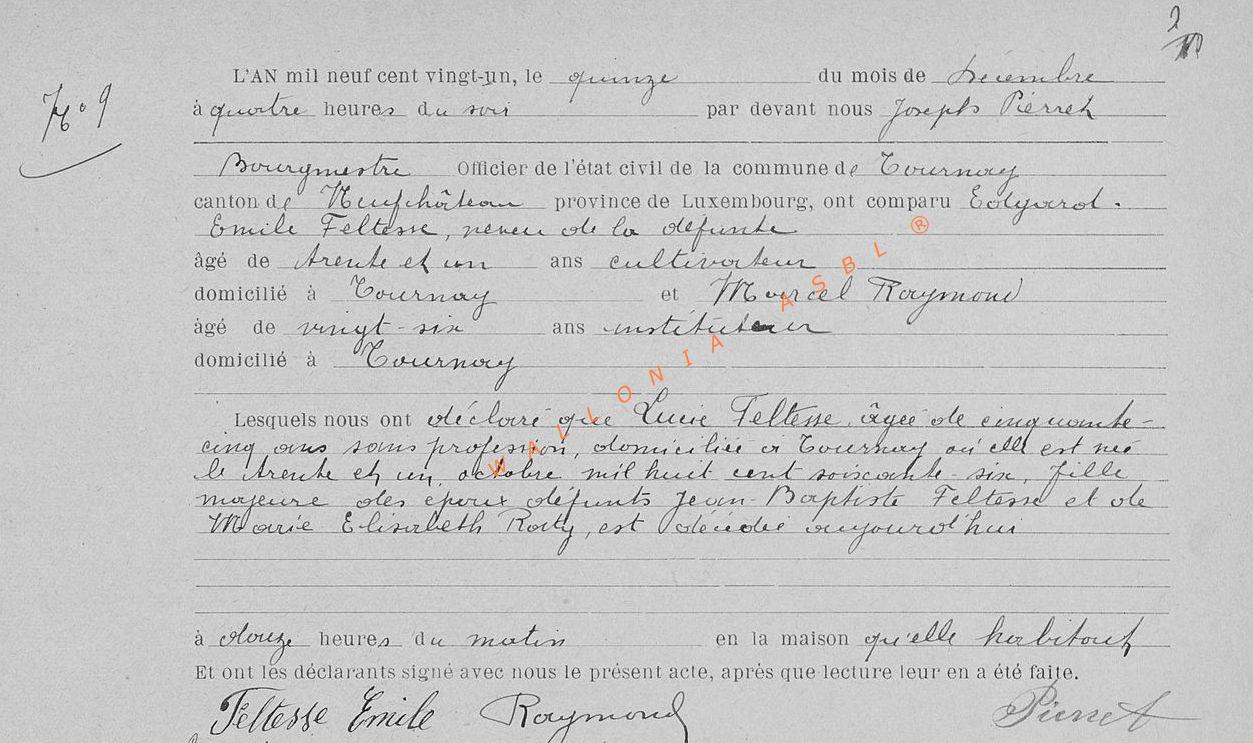 2
L'AN mil neuf cent vingt-un, le quinze du mois de Décembre
N° 9
à quatre heures du soir par devant nous Joseph Pierret
Bourgmestre Officier de l'état civil de la commune de Tournay
canton de Neufchâteau province de Luxembourg, ont comparu Edgard.
Emile Feltesse, neveu de la défunte
âgé de trente et un ans cultivateur
domicilié à Tournay et Marcel Raymond
âgé de vingt-six ans instituteur
domicilié à Tournay
Lesquels nous ont déclaré que Lucie Feltesse, âgée de cinquante-
cinq ans sans profession, domiciliée à Tournay où elle est née
le trente et un octobre mil huit cent soixante-six, fille
majeure des époux défunts Jean-Baptiste Feltesse et de
Marie Elisabeth Roty, est décédée aujourd'hui
à douze heures du matin en la maison qu'elle habitait
Et ont les déclarants signé avec nous le présent acte, après que lecture leur en a été faite.
Feltesse Emile Raymond Pierret
WALLONIA ASBL ®